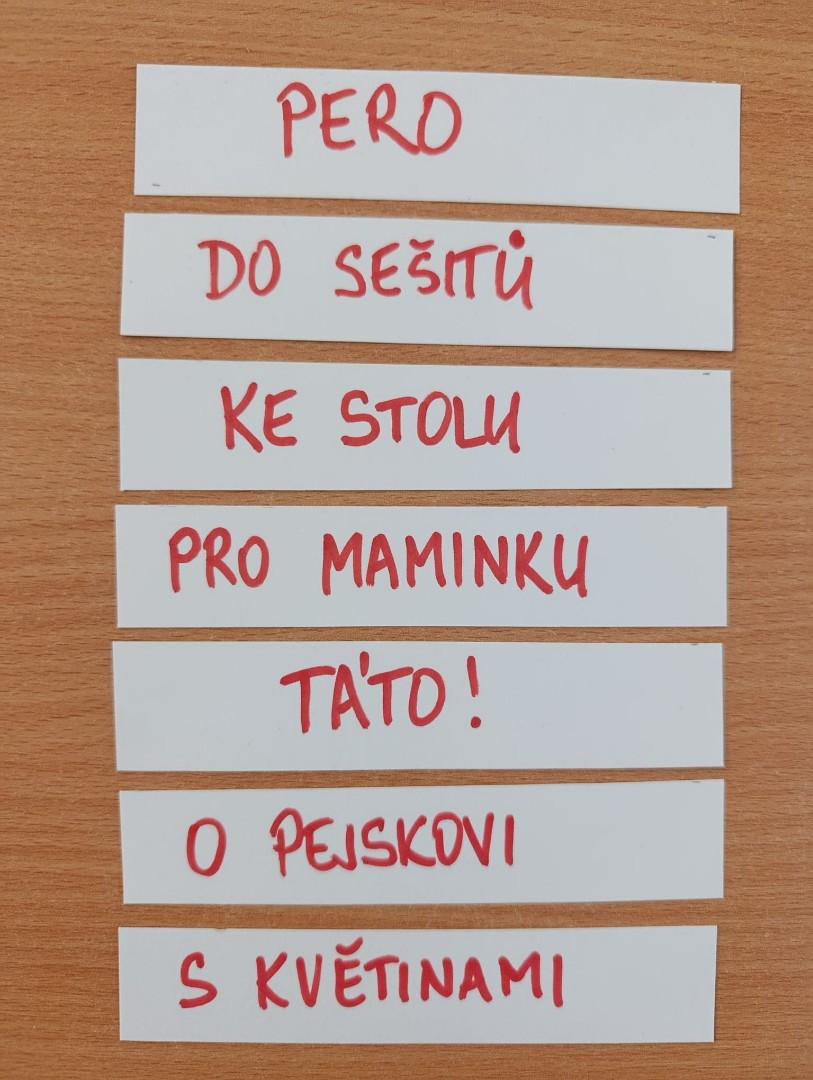 PERO
DO SEŠITŮ
KE STOLU
PRO MAMINKU
TÁTO!
O PEJSKOVI
S KVĚTINAMI